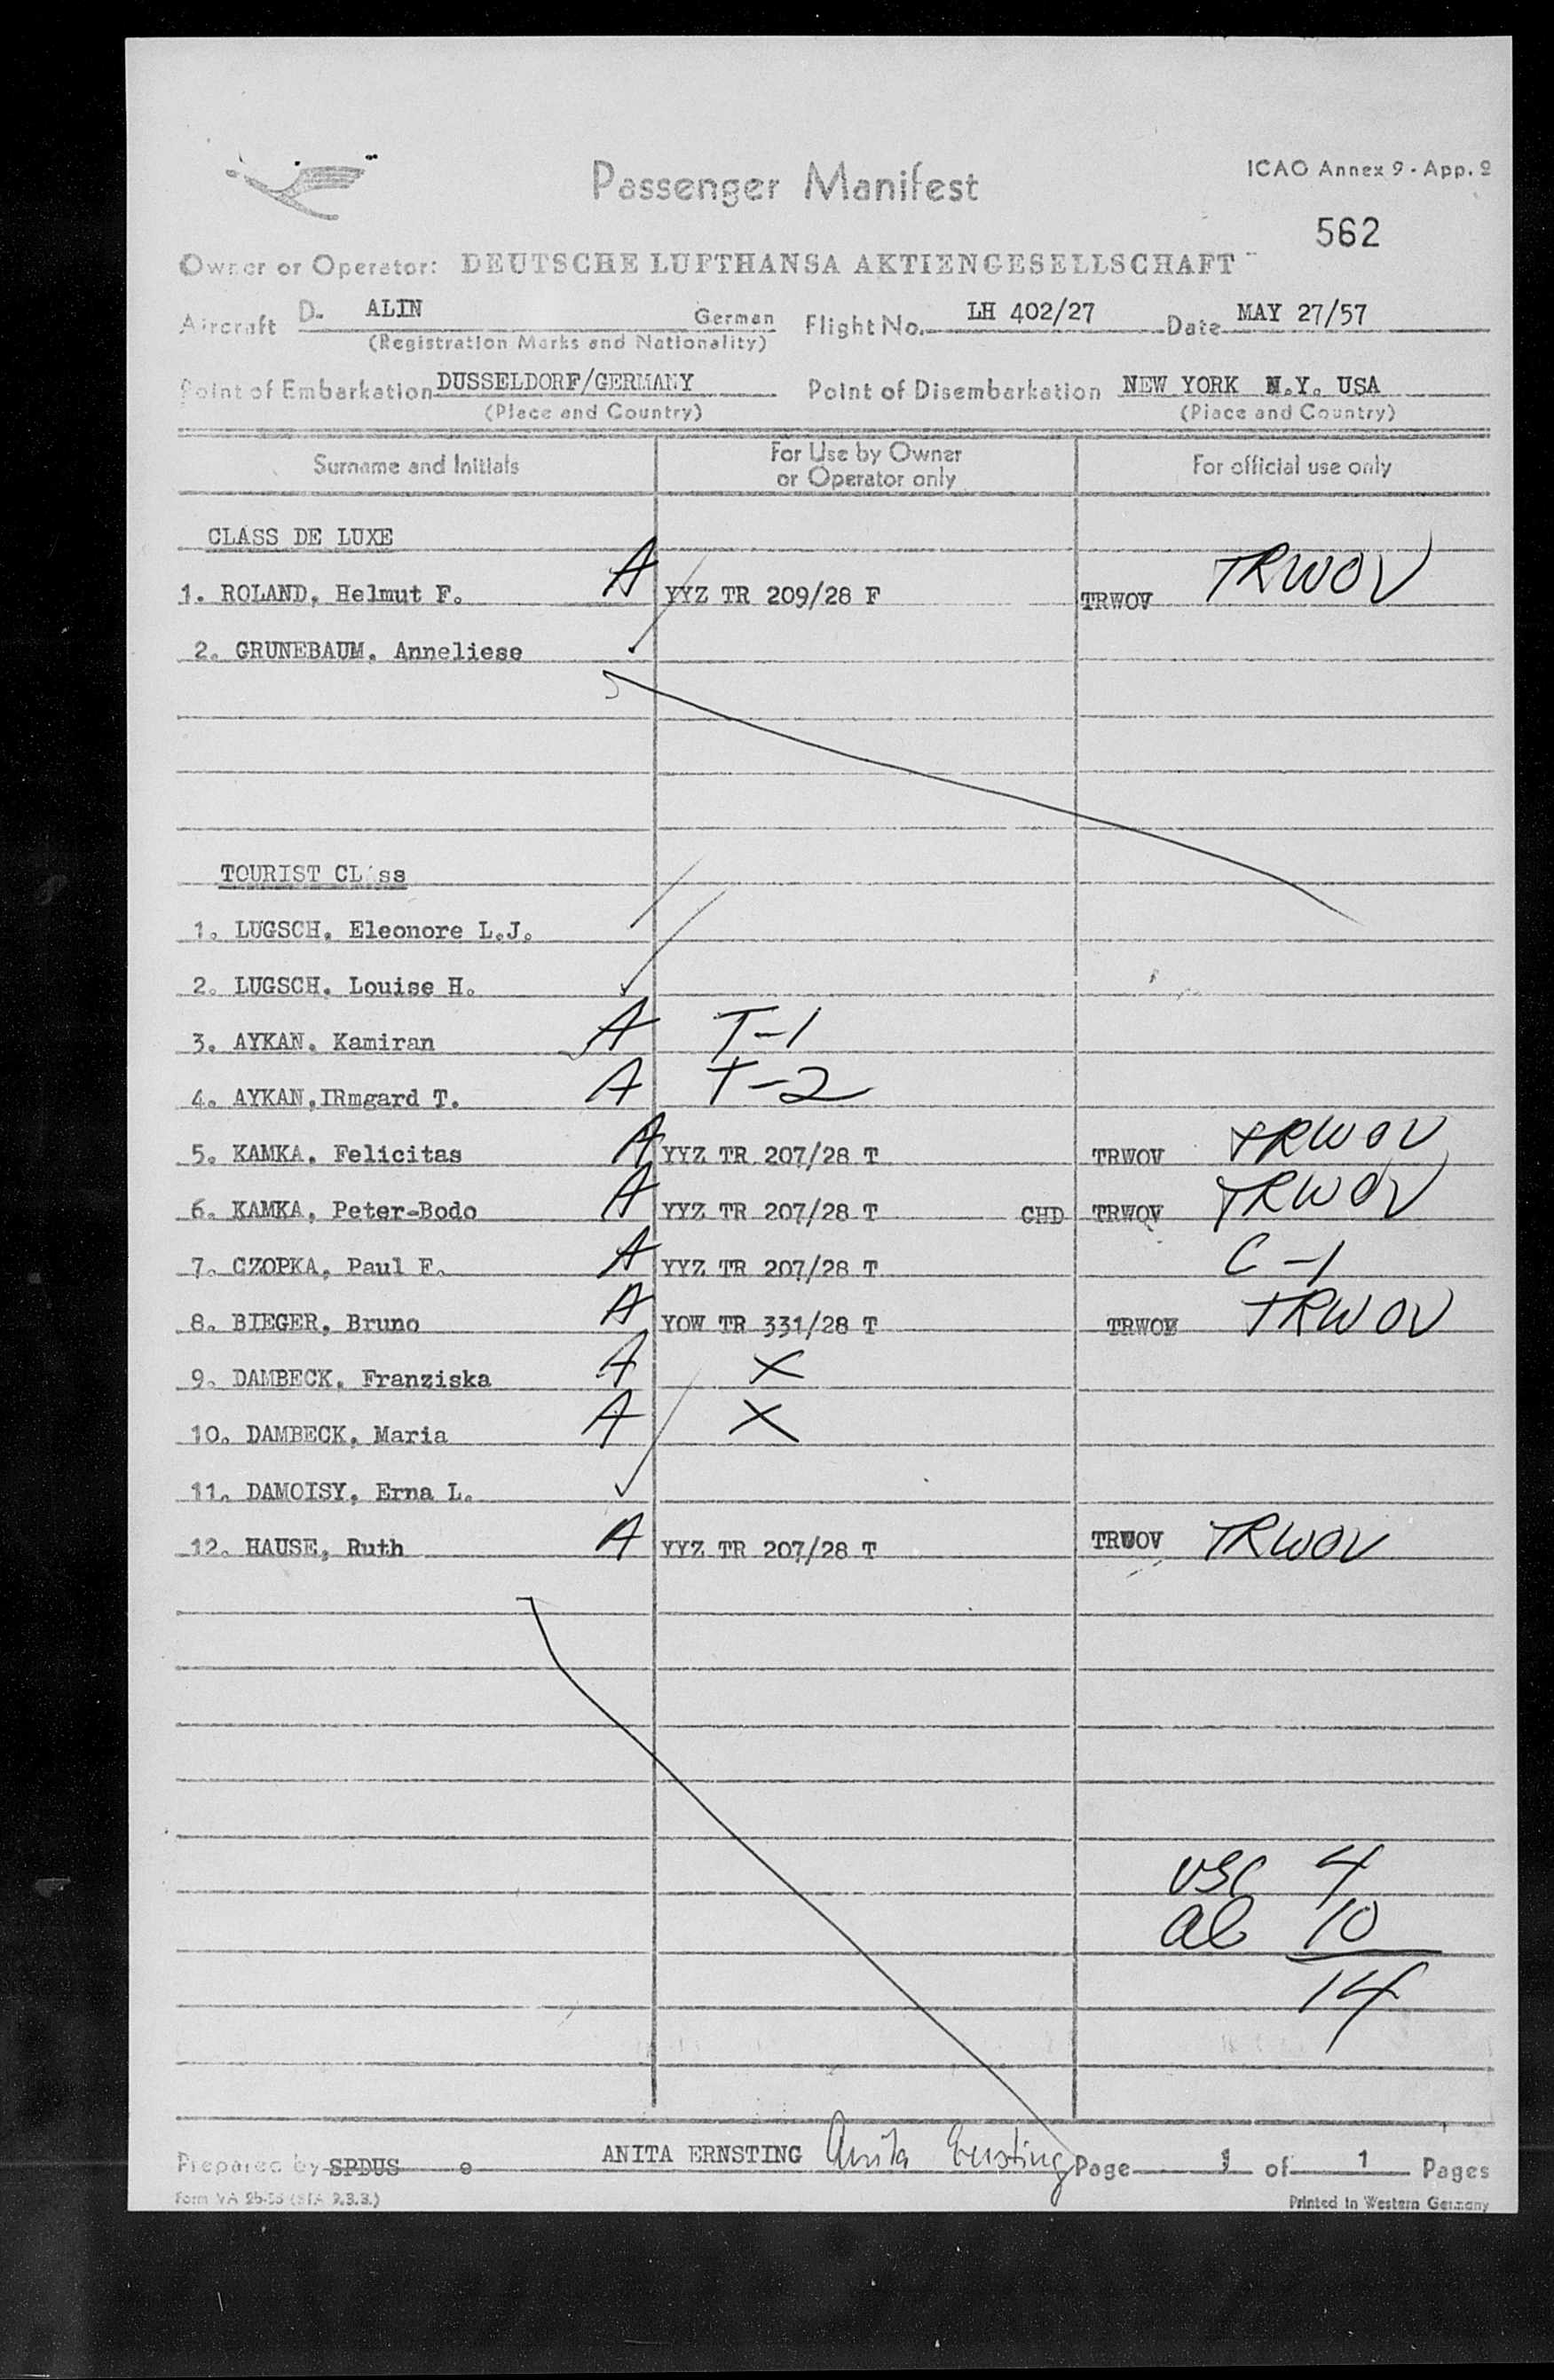 Passenger Manifest
ICAO Annex 9 - App. 2
562
Owner or Operator: DEUTSCHE LUFTHANSA AKTIENGESELLSCHAFT
Aircraft D- ALIN German Flight No. LH 402/27 Date MAY 27/57
(Registration Marks and Nationality)
Point of Embarkation DUSSELDORF/GERMANY Point of Disembarkation NEW YORK N.Y. USA
(Place and Country) (Place and Country)
Surname and Initials For Use by Owner or Operator only For official use only
CLASS DE LUXE
1. ROLAND, Helmut F. A YYZ TR 209/28 F TRWOV TRWOV
2. GRUNEBAUM, Anneliese
TOURIST CL ss
1. LUGSCH, Eleonore L.J.
2. LUGSCH, Louise H.
3. AYKAN, Kamiran A T-1
4. AYKAN,IRmgard T. A T-2
5. KAMKA, Felicitas A YYZ TR 207/28 T TRWOV TRWOV
6. KAMKA, Peter-Bodo A YYZ TR 207/28 T CHD TRWOV TRWOV
7. CZOPKA, Paul F. A YYZ TR 207/28 T C-1
8. BIEGER, Bruno A YOW TR 331/28 T TRWOV TRWOV
9. DAMBECK, Franziska A X
10. DAMBECK, Maria A X
11. DAMOISY, Erna L.
12. HAUSE, Ruth A YYZ TR 207/28 T TRWOV TRWOV
USC 4
al 10
14
Prepared by SPDUS ANITA ERNSTING Anita Ernsting Page 1 of 1 Pages
Printed in Western Germany